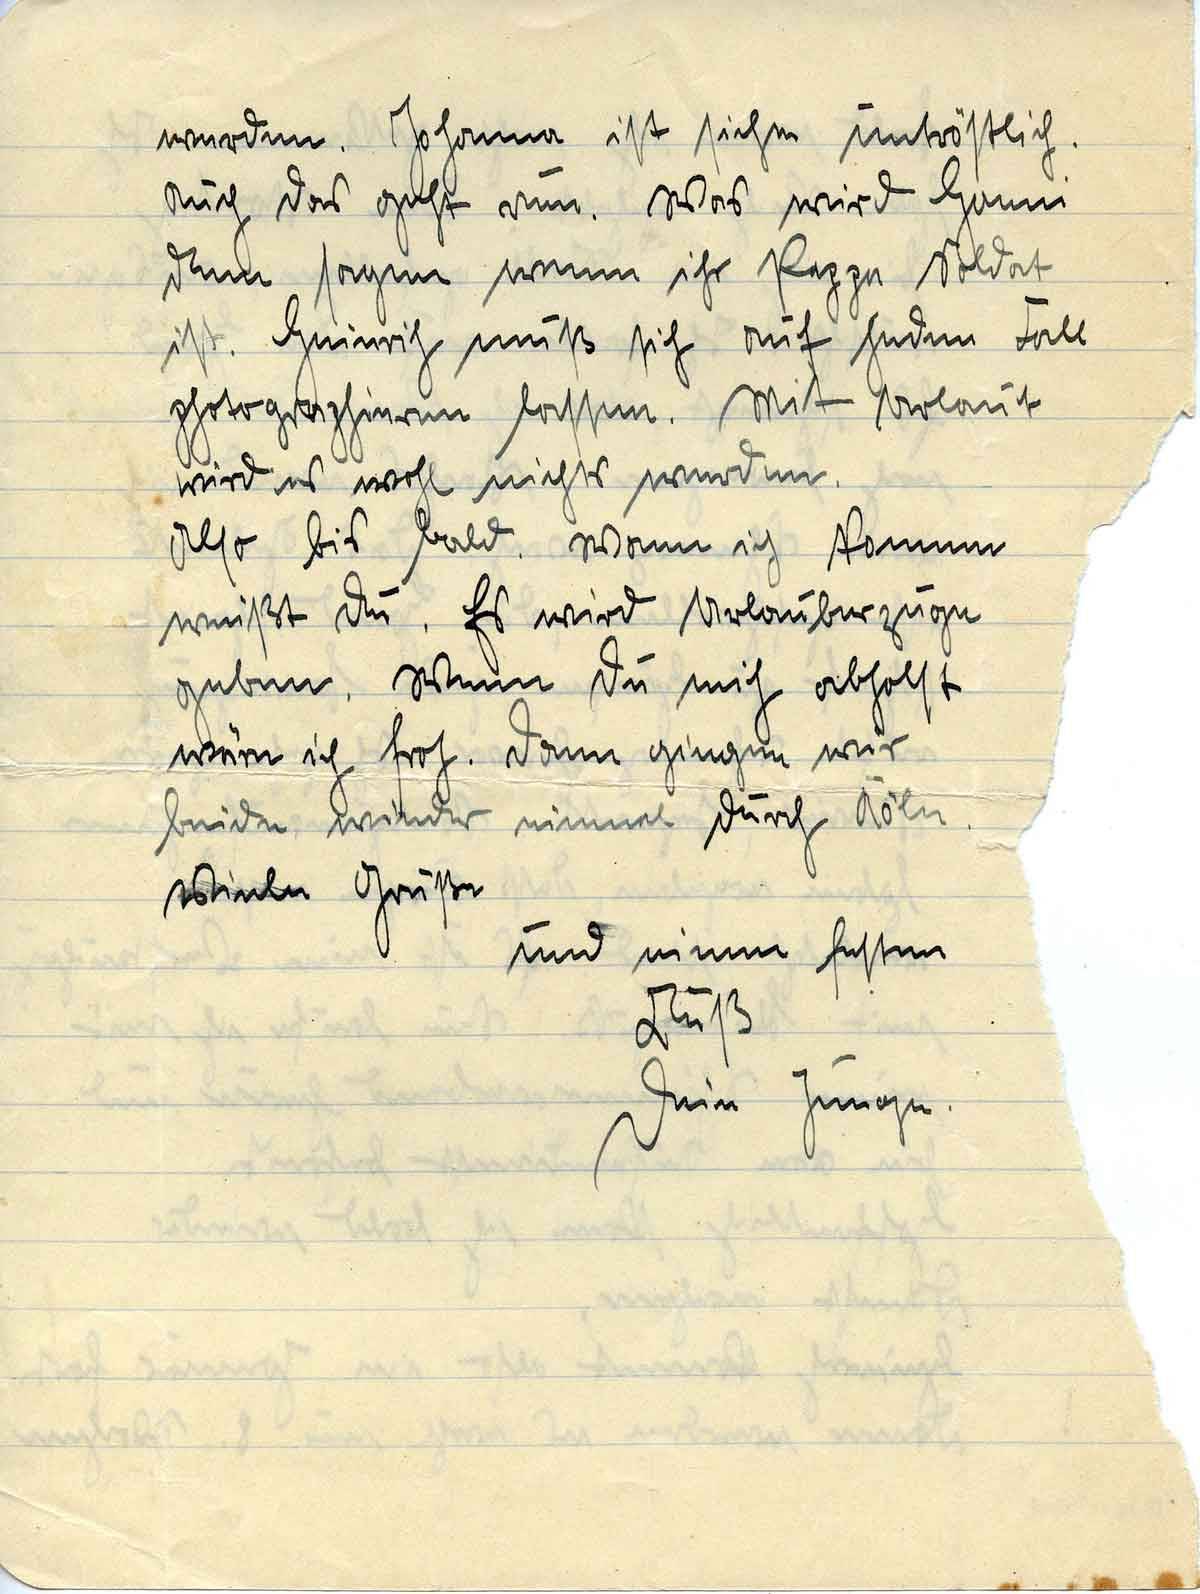 werden. Johanna ist sicher untröstlich.
Auch das geht rum. Was wird Hanni
denn sagen wenn ihr Pappa Soldat
ist. Heinrich muß sich auf jeden Fall
photographieren lassen. Mit Urlaub
wird es wohl nichts werden.
Also bis bald. Wann ich komme
weißt Du. Es wird Urlauberzüge
geben. Wenn Du mich abholst
wäre ich froh. Dann gingen wir
beide wieder einmal durch Köln.
Viele Grüße
und einen festen
Kuß
Dein Junge.